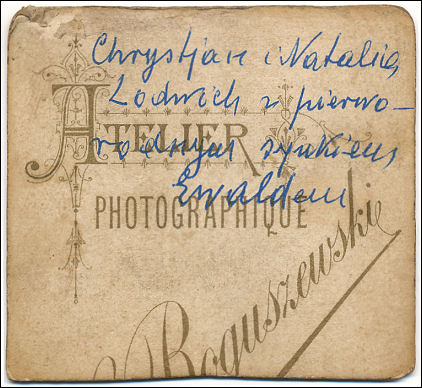 Chrystjan i Natalia
Lodwich z pierwo-
rodnym synkiem
Ewaldem
ATELIER
PHOTOGRAPHIQUE
Boguszewski